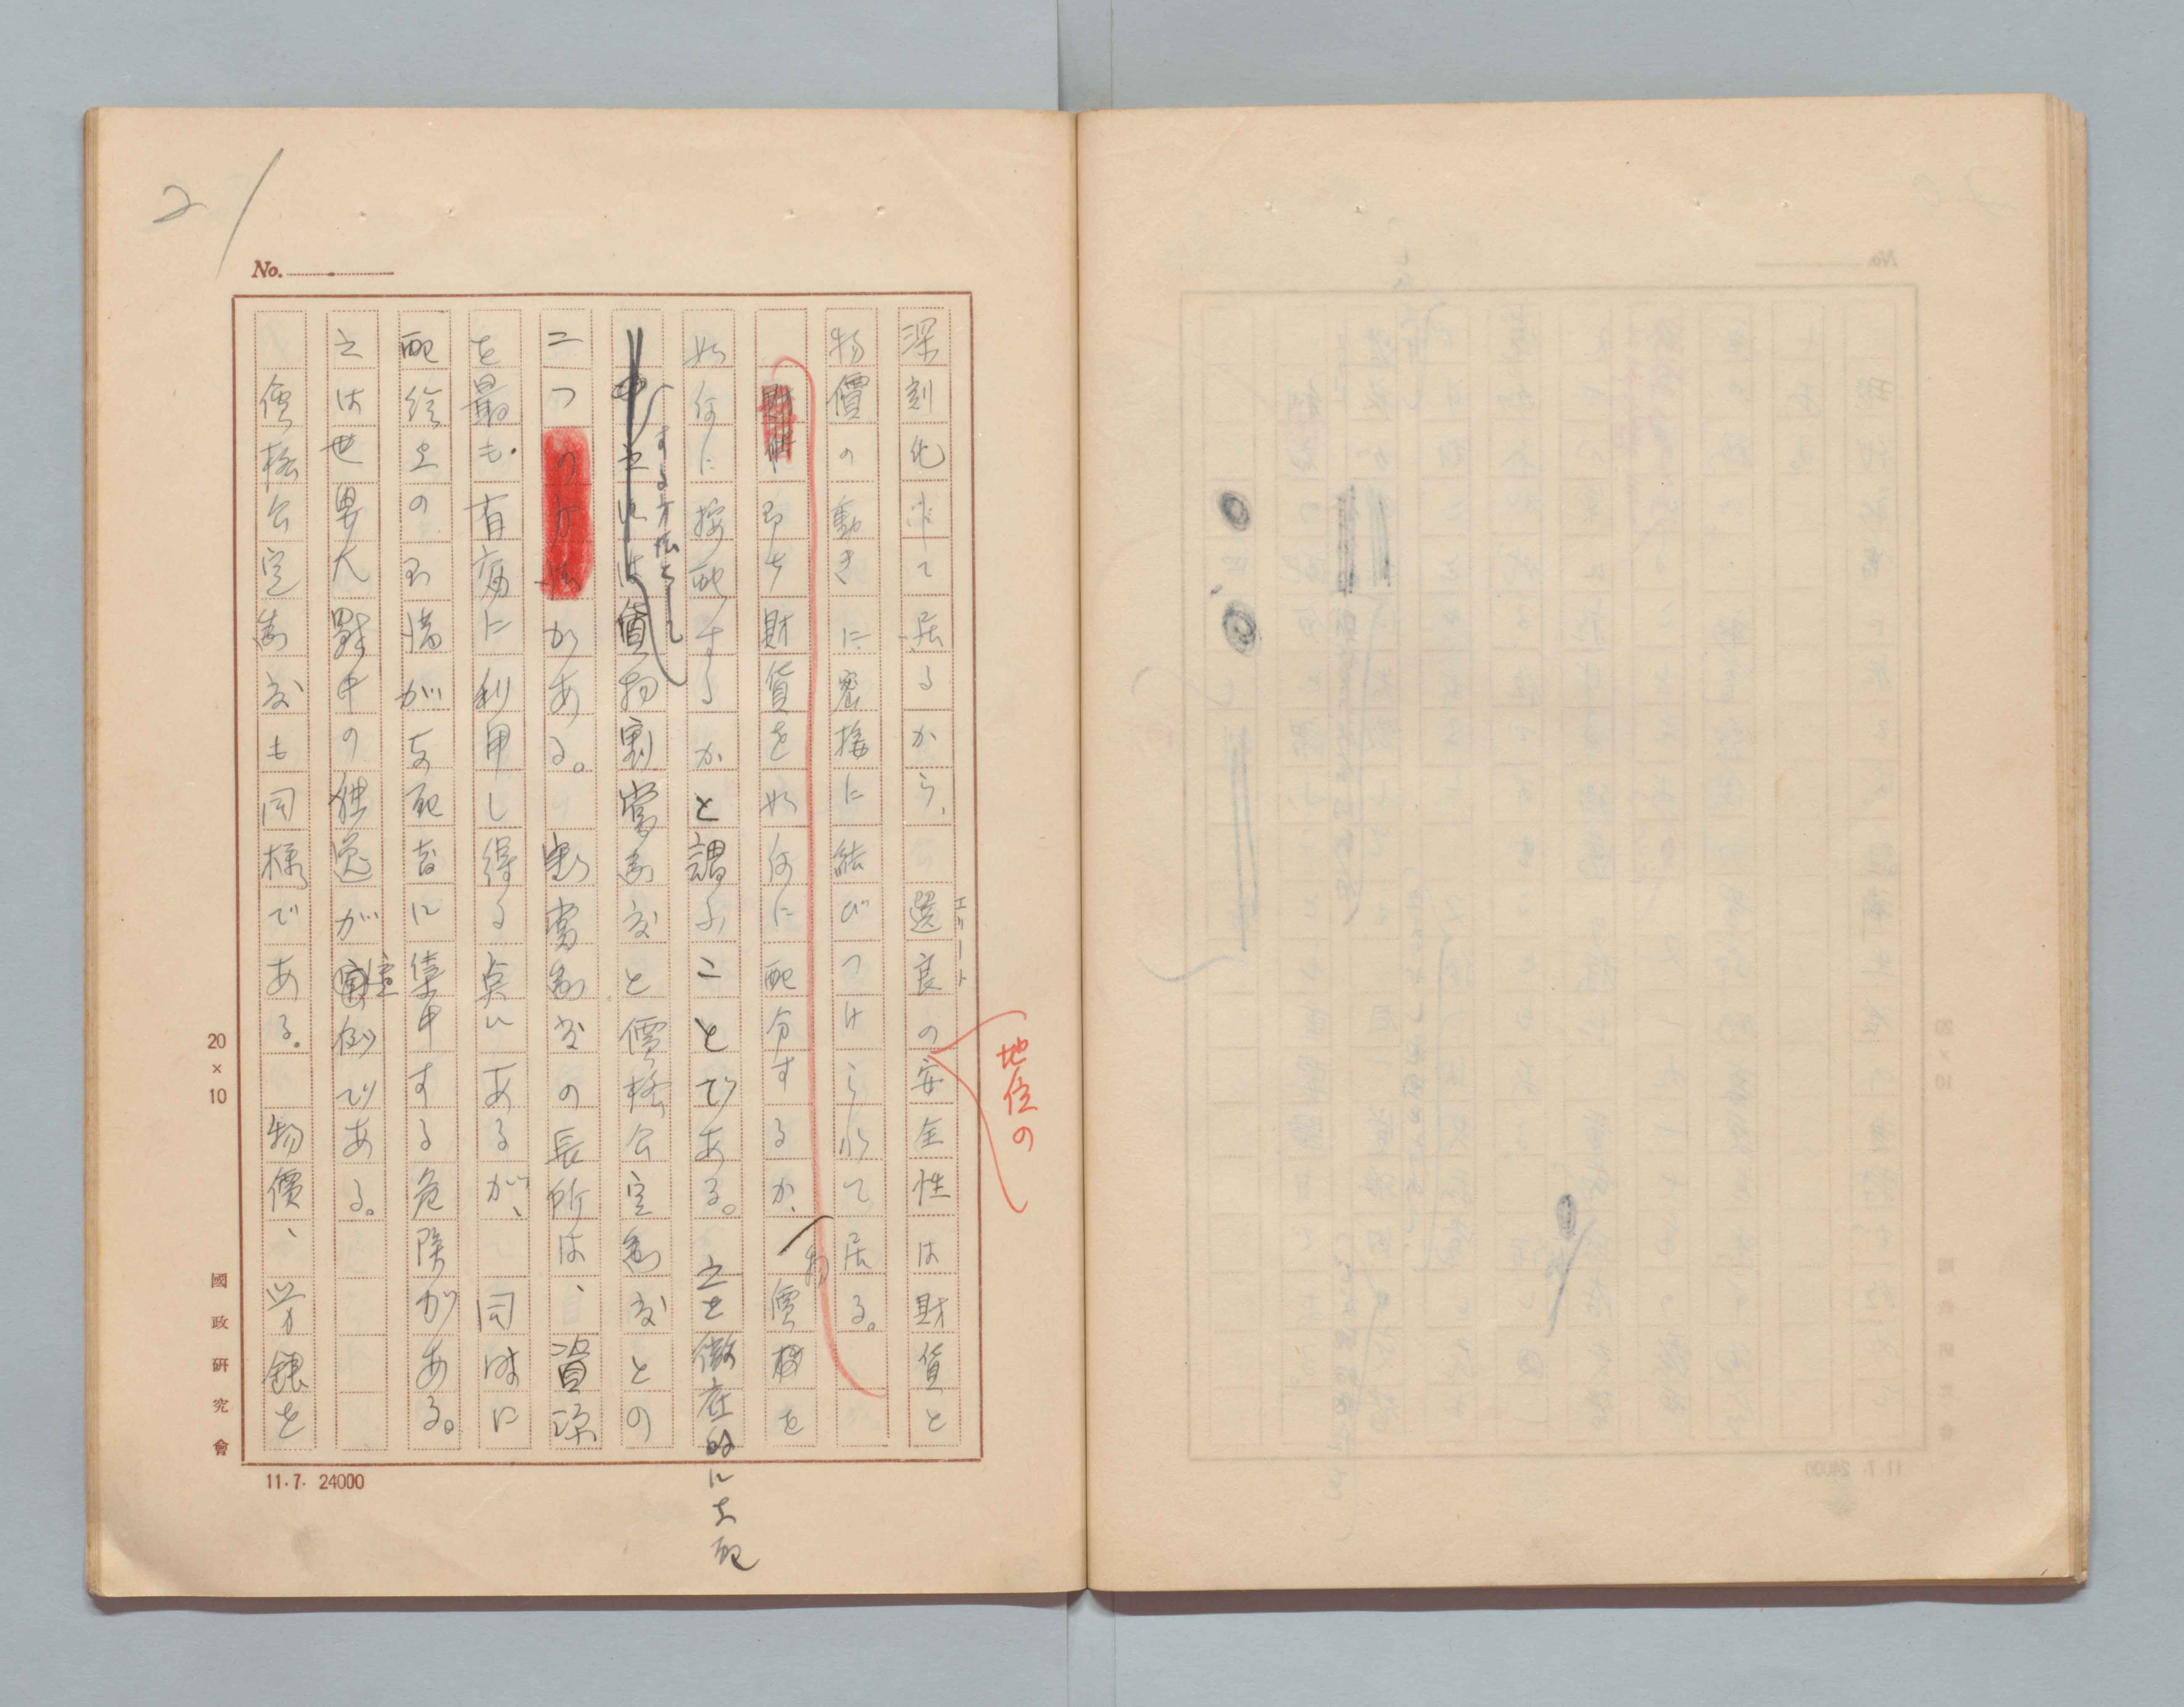 21
No.
深刻化して居るから、選良の安全性は財貨と
エリート
地位の
物價の動きに密接に結びつけられて居る。
即ち財貨を如何に配分するか、物價格を
如何に按配するかと謂ふことである。之を徹底的に支配
する方法として
貨物割當制度と價格公定制度との
二つの方法がある。割當制度の長所は、資源
を最も有効に利用し得る点にあるが、同時に
配給上の感情が支配者に集中する危険がある。
之は世界大戰中の独逸が實例である。
價格公定制度も同様である。物價、労銀を
20×10
國政研究會
11.7. 24000